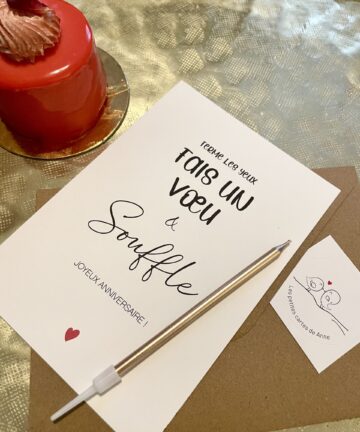 FERME LES YEUX
FAIS UN
VŒU
&
Souffle
JOYEUX ANNIVERSAIRE !
Les petites cartes de Anne